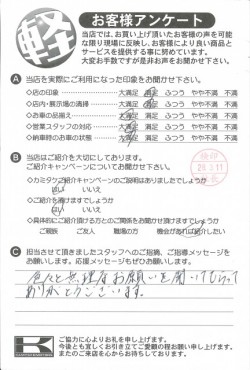 軽
お客様アンケート
当店では、お買い上げ頂いたお客様の声を可能
な限り現場に反映し、お客様により良い商品と
サービスを提供する事に努めています。
大変お手数ですが是非お声をお聞かせ下さい。
A 当店を実際にご利用になった印象をお聞かせ下さい。
◇店の印象 大満足 満足 ふつう やや不満 不満
◇店内・展示場の清掃 大満足 満足 ふつう やや不満 不満
◇お車の品揃え 大満足 満足 ふつう やや不満 不満
◇営業スタッフの対応 大満足 満足 ふつう やや不満 不満
◇納車時のお車の状態 大満足 満足 ふつう やや不満 不満
B 当店はご紹介を大切にしております。
ご紹介キャンペーンについてお聞かせ下さい。
◇カミタケご紹介キャンペーンのご説明はありましたでしょうか
はい いいえ
◇ご紹介を頂けますでしょうか
はい いいえ
◇具体的にご紹介頂ける方とのご関係をお聞かせ頂けますでしょうか
ご親族 ご友人 職場の方 機会があれば紹介したい
C 担当させて頂きましたスタッフへのご指摘、ご指導メッセージを
お願いします。応援メッセージもぜひお願いします。
色々と無理なお願いを聞いてもらって
ありがとうございます。
K
ご協力に心よりお礼を申し上げます。
今後とも宜しくお引き立てご愛顧の程お願い申し上げます。
またのご来店を心からお待ちしております。